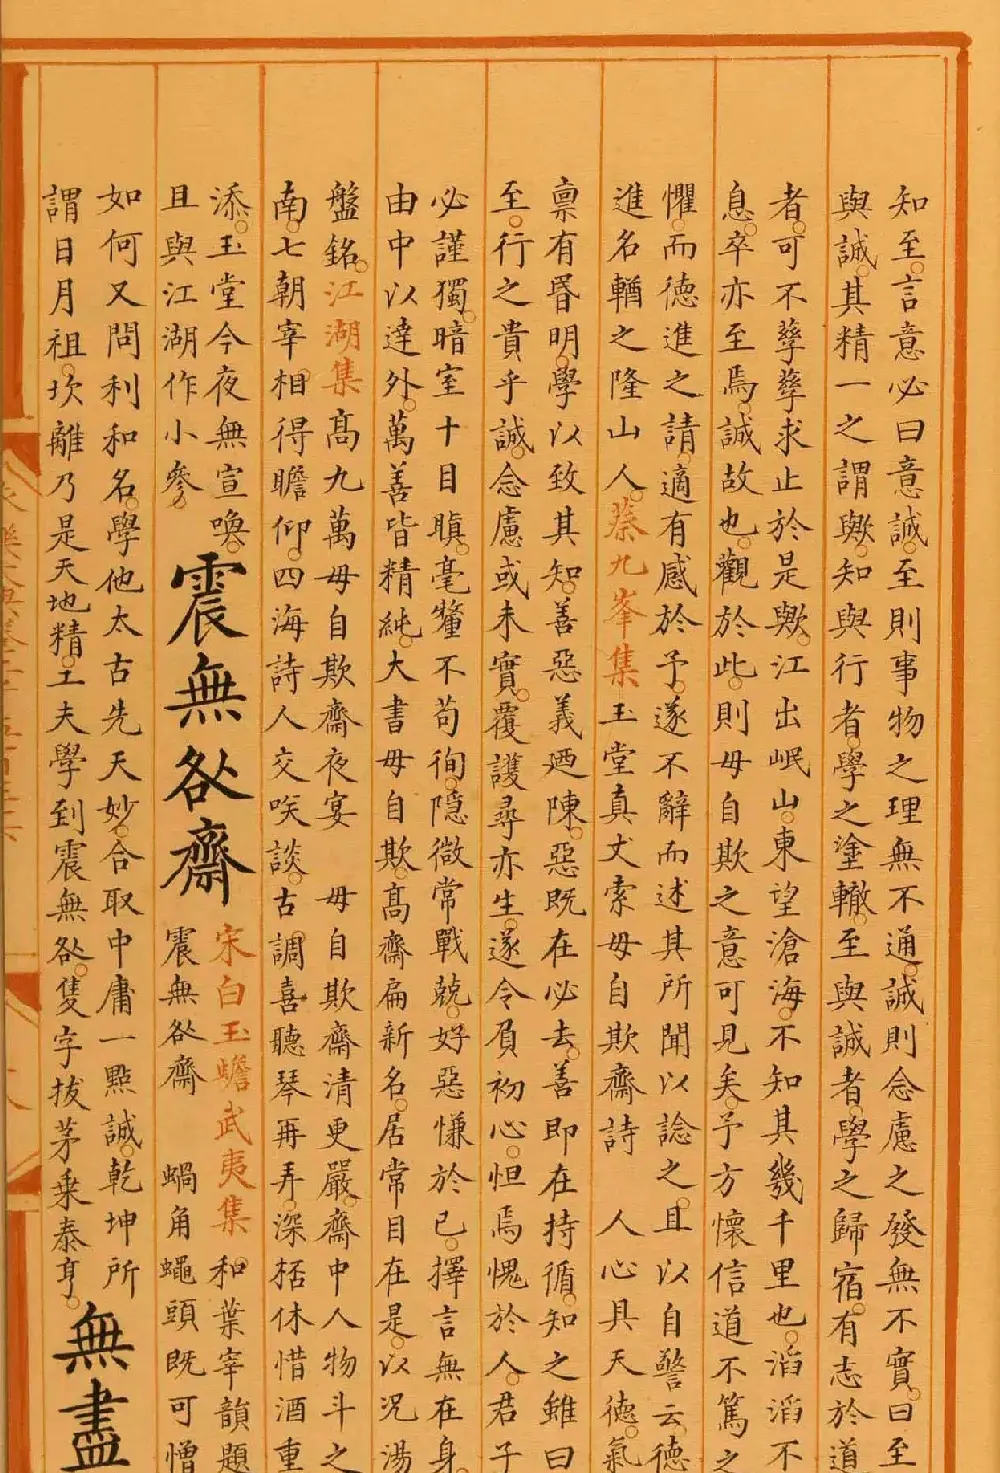 知至。言意必曰意誠。至則事物之理無不通。誠則念慮之發無不實。曰至
與誠。其精一之謂歟。知與行者。學之塗轍。至與誠者。學之歸宿。有志於道
者。可不孳孳求止於是歟。江出岷山。東望滄海。不知其幾千里也。滔滔不
息。卒亦至焉。誠故也。觀於此。則毋自欺之意可見矣。予方懷信道不篤之
懼。而德進之請。適有感於予。遂不辭而述其所聞以諗之。且以自警云。德
進名輶之隆山人。蔡九峯集玉堂真丈索毋自欺齋詩　人心具天德。氣
稟有昬明。學以致其知。善惡義迺陳。惡既在必去。善即在持循。知之雖曰
至。行之貴乎誠。念慮或未實。覆護尋亦生。遂令負初心。怛焉愧於人。君子
必謹獨。暗室十目瞋。毫釐不苟徇。隱微常戰兢。好惡慊於己。擇言無在身。
由中以達外。萬善皆精純。大書毋自欺。高齋扁新名。居常目在是。以况湯
盤銘。江湖集高九萬毋自欺齋夜宴　毋自欺齋清更嚴。齋中人物斗之
南。七朝宰相得瞻仰。四海詩人交唉談。古調喜聽琴再弄。深桮休惜酒重
添。玉堂今夜無宣喚。
且與江湖作小參。
震無咎齋
宋白玉蟾武夷集和葉宰韻題
震無咎齋　蝸角蠅頭既可憎
如何又問利和名。學他太古先天妙。合取中庸一點誠。乾坤所
謂日月祖。坎離乃是天地精。工夫學到震無咎。隻字拔茅乗泰亨。
無盡